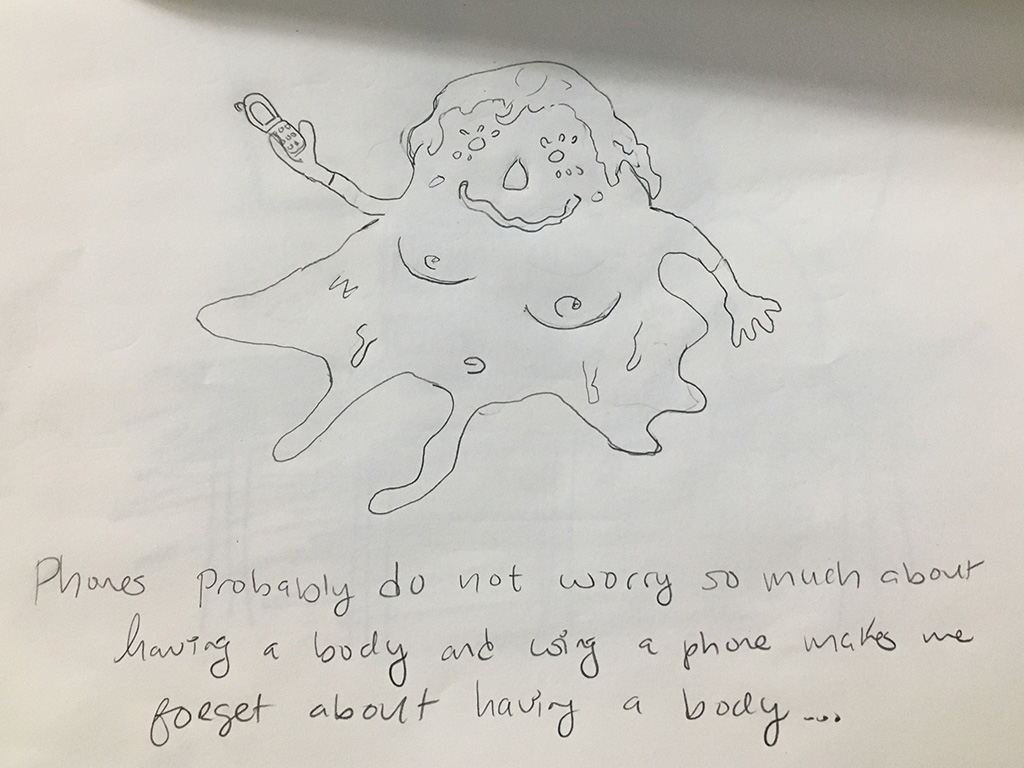 Phones probably do not worry so much about
having a body and using a phone makes me
forget about having a body...